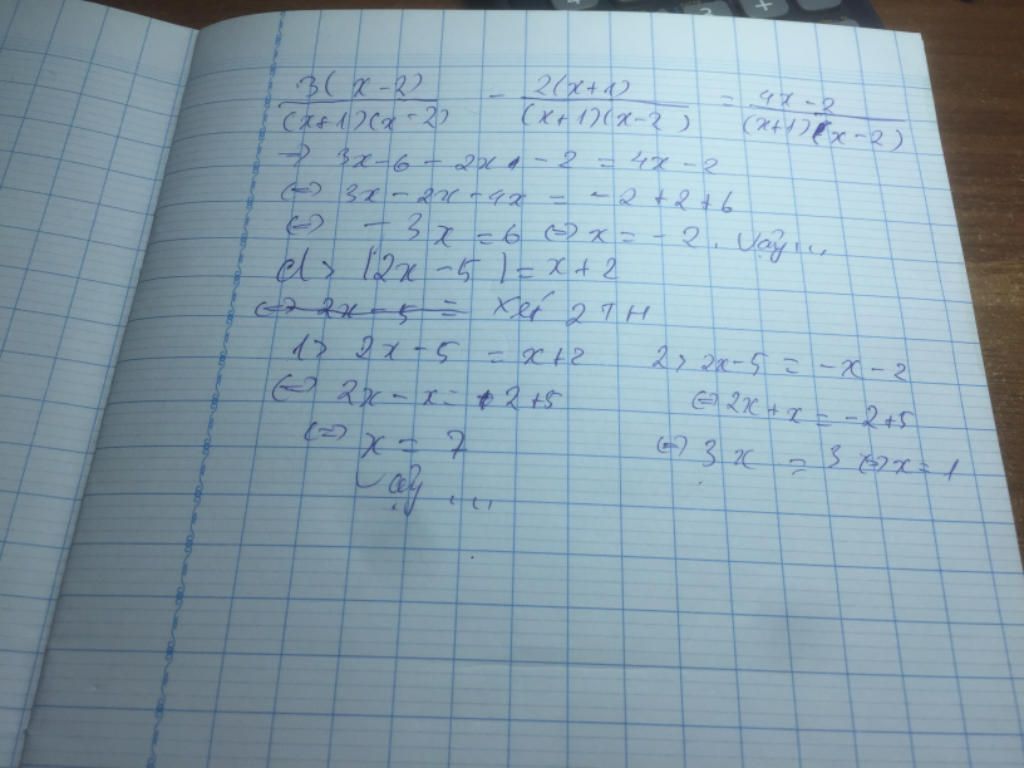 3(x-2)/(x+1)(x-2) - 2(x+1)/(x+1)(x-2) = 4x-2/(x+1)(x-2)
→ 3x-6-2x-2 = 4x-2
⇔ 3x-2x-4x = -2+2+6
⇔ -3x = 6 ⇔ x = -2. Vậy...
d> |2x-5| = x+2
⇔ 2x-5 = Xét 2TH
1> 2x-5 = x+2 2> 2x-5 = -x-2
⇔ 2x-x = 2+5 ⇔ 2x+x = -2+5
⇔ x = 7 ⇔ 3x = 3 ⇔ x = 1
Vậy ...